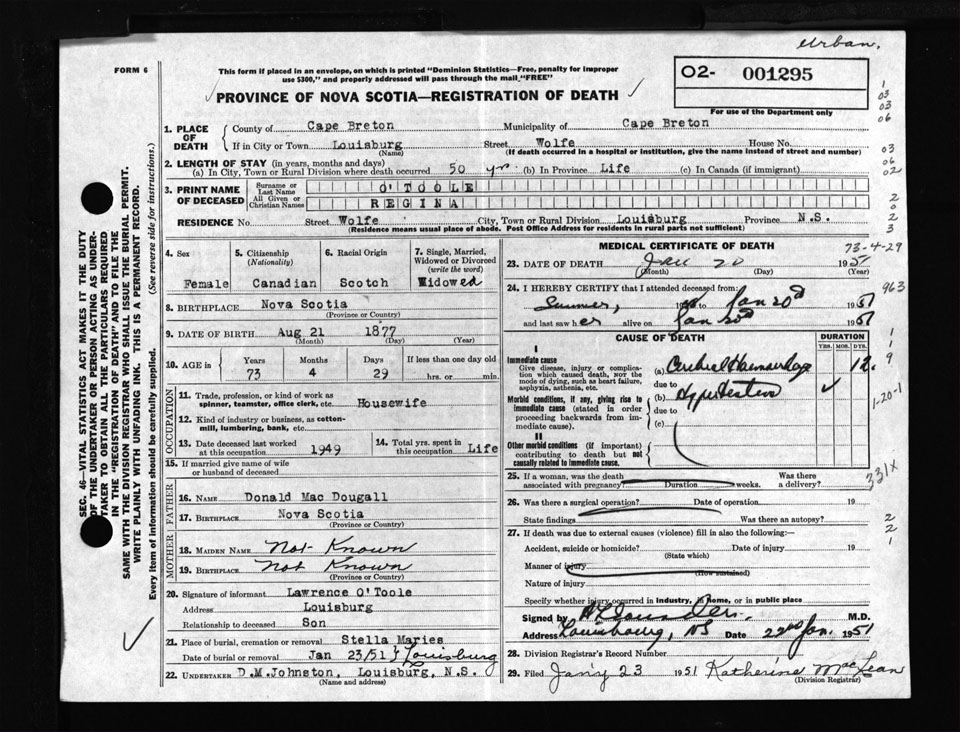 Urban.
FORM 6
This form if placed in an envelope, on which is printed "Dominion Statistics—Free, penalty for improper
use $300," and properly addressed will pass through the mail "FREE"
O2- 001295
For use of the Department only
PROVINCE OF NOVA SCOTIA—REGISTRATION OF DEATH
1. PLACE OF DEATH
County of Cape Breton Municipality of Cape Breton
If in City or Town Louisburg Street Wolfe House No.
(Name) (If death occurred in a hospital or institution, give the name instead of street and number)
2. LENGTH OF STAY (in years, months and days)
(a) In City, Town or Rural Division where death occurred 50 yrs (b) In Province Life (c) In Canada (if immigrant)
3. PRINT NAME OF DECEASED
Surname or Last Name O'TOOLE
All Given or Christian Names REGINA
RESIDENCE No. Street Wolfe City, Town or Rural Division Louisburg Province N.S.
(Residence means usual place of abode. Post Office Address for residents in rural parts not sufficient)
4. Sex 5. Citizenship (Nationality) 6. Racial Origin 7. Single, Married, Widowed or Divorced (write the word)
Female Canadian Scotch Widowed
8. BIRTHPLACE Nova Scotia
(Province or Country)
9. DATE OF BIRTH Aug 21 1877
(Month) (Day) (Year)
10. AGE in Years Months Days If less than one day old
73 4 29 hrs. or min.
OCCUPATION
11. Trade, profession, or kind of work as
spinner, teamster, office clerk, etc. Housewife
12. Kind of industry or business, as cotton-
mill, lumbering, bank, etc.
13. Date deceased last worked
at this occupation 1949
14. Total yrs. spent in
this occupation Life
15. If married give name of wife
or husband of deceased
FATHER
16. NAME Donald Mac Dougall
17. BIRTHPLACE Nova Scotia
(Province or Country)
MOTHER
18. MAIDEN NAME Not Known
19. BIRTHPLACE Not Known
(Province or Country)
20. Signature of informant Lawrence O'Toole
Address Louisburg
Relationship to deceased Son
21. Place of burial, cremation or removal Stella Maries
Date of burial or removal Jan 23/51 Louisburg
22. UNDERTAKER D.M.Johnston, Louisburg, N.S.
(Name and address)
MEDICAL CERTIFICATE OF DEATH
73-4-29
23. DATE OF DEATH Jan 20 1951
(Month) (Day) (Year)
24. I HEREBY CERTIFY that I attended deceased from:
Summer, to Jan 20d 1951
and last saw her alive on Jan 20d 1951
963
CAUSE OF DEATH DURATION
YRS. MOS. DYS.
I
Immediate cause
Give disease, injury or complica-
tion which caused death, NOT the
mode of dying, such as heart failure,
asphyxia, asthenia, etc.
(a) Cerebral Haemorrhage
due to
Morbid conditions, if any, giving rise to
immediate cause (stated in order
proceeding backwards from im-
mediate cause).
(b) Hypertension
due to
(c)
II
Other morbid conditions (if important)
contributing to death but not
causally related to immediate cause.
1-20-1
331X
25. If a woman, was the death
associated with pregnancy? Duration weeks. Was there
a delivery?
26. Was there a surgical operation? Date of operation 19
State findings Was there an autopsy?
27. If death was due to external causes (violence) fill in also the following:—
Accident, suicide or homicide? Date of injury 19
(State which)
Manner of injury
(How sustained)
Nature of injury
Specify whether injury occurred in industry, in home, or in public place
Signed by M.D.
Address Louisbourg, NS Date 22nd Jan. 1951
28. Division Registrar's Record Number
29. Filed Jan'y 23 1951 Katherine MacLean
(Division Registrar)
SEC. 46—VITAL STATISTICS ACT MAKES IT THE DUTY
OF THE UNDERTAKER OR PERSON ACTING AS UNDER-
TAKER TO OBTAIN ALL THE PARTICULARS REQUIRED
IN THE "REGISTRATION OF DEATH" AND TO FILE THE
SAME WITH THE DIVISION REGISTRAR WHO SHALL ISSUE THE BURIAL PERMIT.
WRITE PLAINLY WITH UNFADING INK. THIS IS A PERMANENT RECORD.
Every item of information should be carefully supplied. (See reverse side for instructions.)
1
03
03
06
03
06
02
2
0
2
3
1
1
9
2
2
1